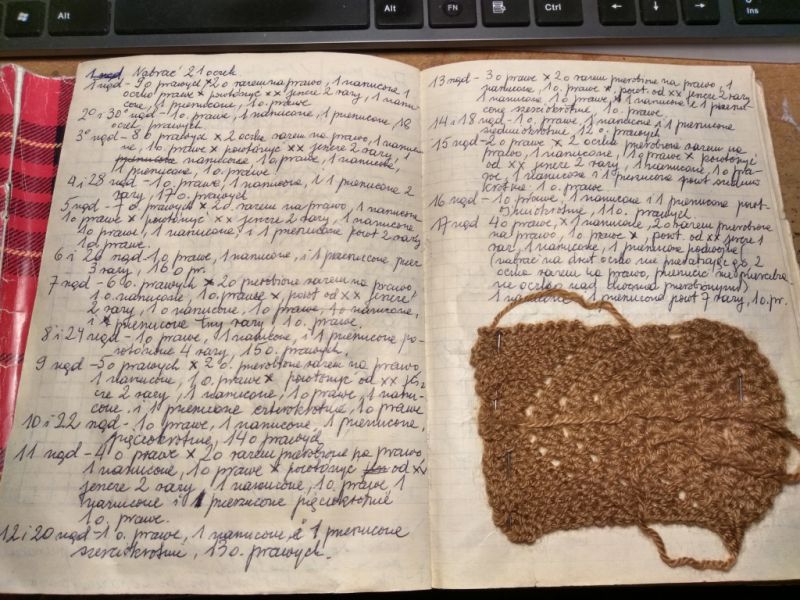 Alt
FN
Alt
Ctrl
0
Ins
1 rząd Nabrać 21 oczek
1 rząd - 9 o prawych × 2 o razem na prawo, 1 narzucone 1
oczko prawe × powtórzyć xx jeszcze 2 razy, 1 narzu
cone, 1 przerzucone, 1 o. prawe
oczek prawych
3 rząd - 8 o prawych × 2 oczka razem na prawo, 1 narzuco
ne, 1 o. prawe × powtórzyć xx jeszcze 2 razy, 1
narzucone 1 o. prawe, 1 narzucone,
1 przerzucone, 1 o. prawe
4 i 28 rząd - 1 o. prawe, 1 narzucone, i 1 przerzucone 2
razy, 17 o. prawych
5 rząd - 7 o. prawych × 2 o. razem na prawo, 1 narzucone
1 o prawe × powtórzyć xx jeszcze 2 razy, 1 narzucone
1 o. prawe, 1 narzucone, i 1 przerzucone powt 2 razy
1 o. prawe
1 o. prawe, 1 narzucone, i 1 przerzucone
3 razy, 16 o pr.
7 rząd - 6 o. prawych × 2 o przerobione razem na prawo,
1 o. narzucone, 1 o. prawe × powt od xx jeszcze
2 razy, 1 o narzucone, 1 o prawe, 1 o narzucone,
i × przerzucone trzy razy, 1 o. prawe.
8 i 24 rząd - 1 o. prawe, 1 narzucone, i 1 przerzucone po-
wtórzone 4 razy, 15 o. prawych.
9 rząd - 5 o prawych × 2 o. przerobione razem na prawo
1 narzucone, 1 o. prawe × powtórzyć od xx jesz
cze 2 razy, 1 narzucone, 1 o prawe, 1 narzu-
cone, i 1 przerzucone czterokrotnie, 1 o prawe
10 i 22 rząd - 1 o. prawe, 1 narzucone, 1 przerzucone,
pięciokrotnie, 14 o prawych
11 rząd - 4 o prawe × 2 o razem przerobione na prawo
1 narzucone, 1 o prawe × powtórzyć od xx
jeszcze 2 razy, 1 narzucone, 1 o. prawe, 1
narzucone i 1 przerzucone pięciokrotnie
1 o. prawe.
12 i 20 rząd - 1 o. prawe, 1 narzucone i 1 przerzucone
sześciokrotnie, 13 o. prawych.
13 rząd - 3 o prawe × 2 o razem przerobione na prawo, 1
narzucone, 1 o. prawe × powt. od xx jeszcze 2 razy
1 narzucone, 1 o prawe, 1 narzucone i 1 przerzu-
cone sześciokrotnie, 1 o. prawe
14 i 18 rząd - 1 o. prawe, 1 narzucone i 1 przerzucone
siedmiokrotnie, 12 o. prawych
15 rząd - 2 o prawe × 2 oczka przerobione razem na
prawo, 1 narzucone, 1 o prawe × powtórzyć
od xx jeszcze 2 razy, 1 narzucone, 1 o pra-
we, 1 narzucone i 1 przerzucone powt siedmio
krotnie, 1 o. prawe
16 rząd - 1 o prawe, 1 narzucone i 1 przerzucone powt-
ośmiokrotnie, 11 o. prawych.
17 rząd 4 o prawe, × 1 narzucone, 2 o razem przerobione
na prawo, 1 o. prawe × powt. od xx jeszcze 1
raz, 1 narzucone, 1 przerzucone podwójnie
(nabrać na drut oczko nie przerabiając go, 2
oczka razem na prawo, przerzucić nieprzerobio-
ne oczko nad dwoma przerobionymi)
1 narzucone, 1 przerzucone powt 7 razy, 1 o. pr.